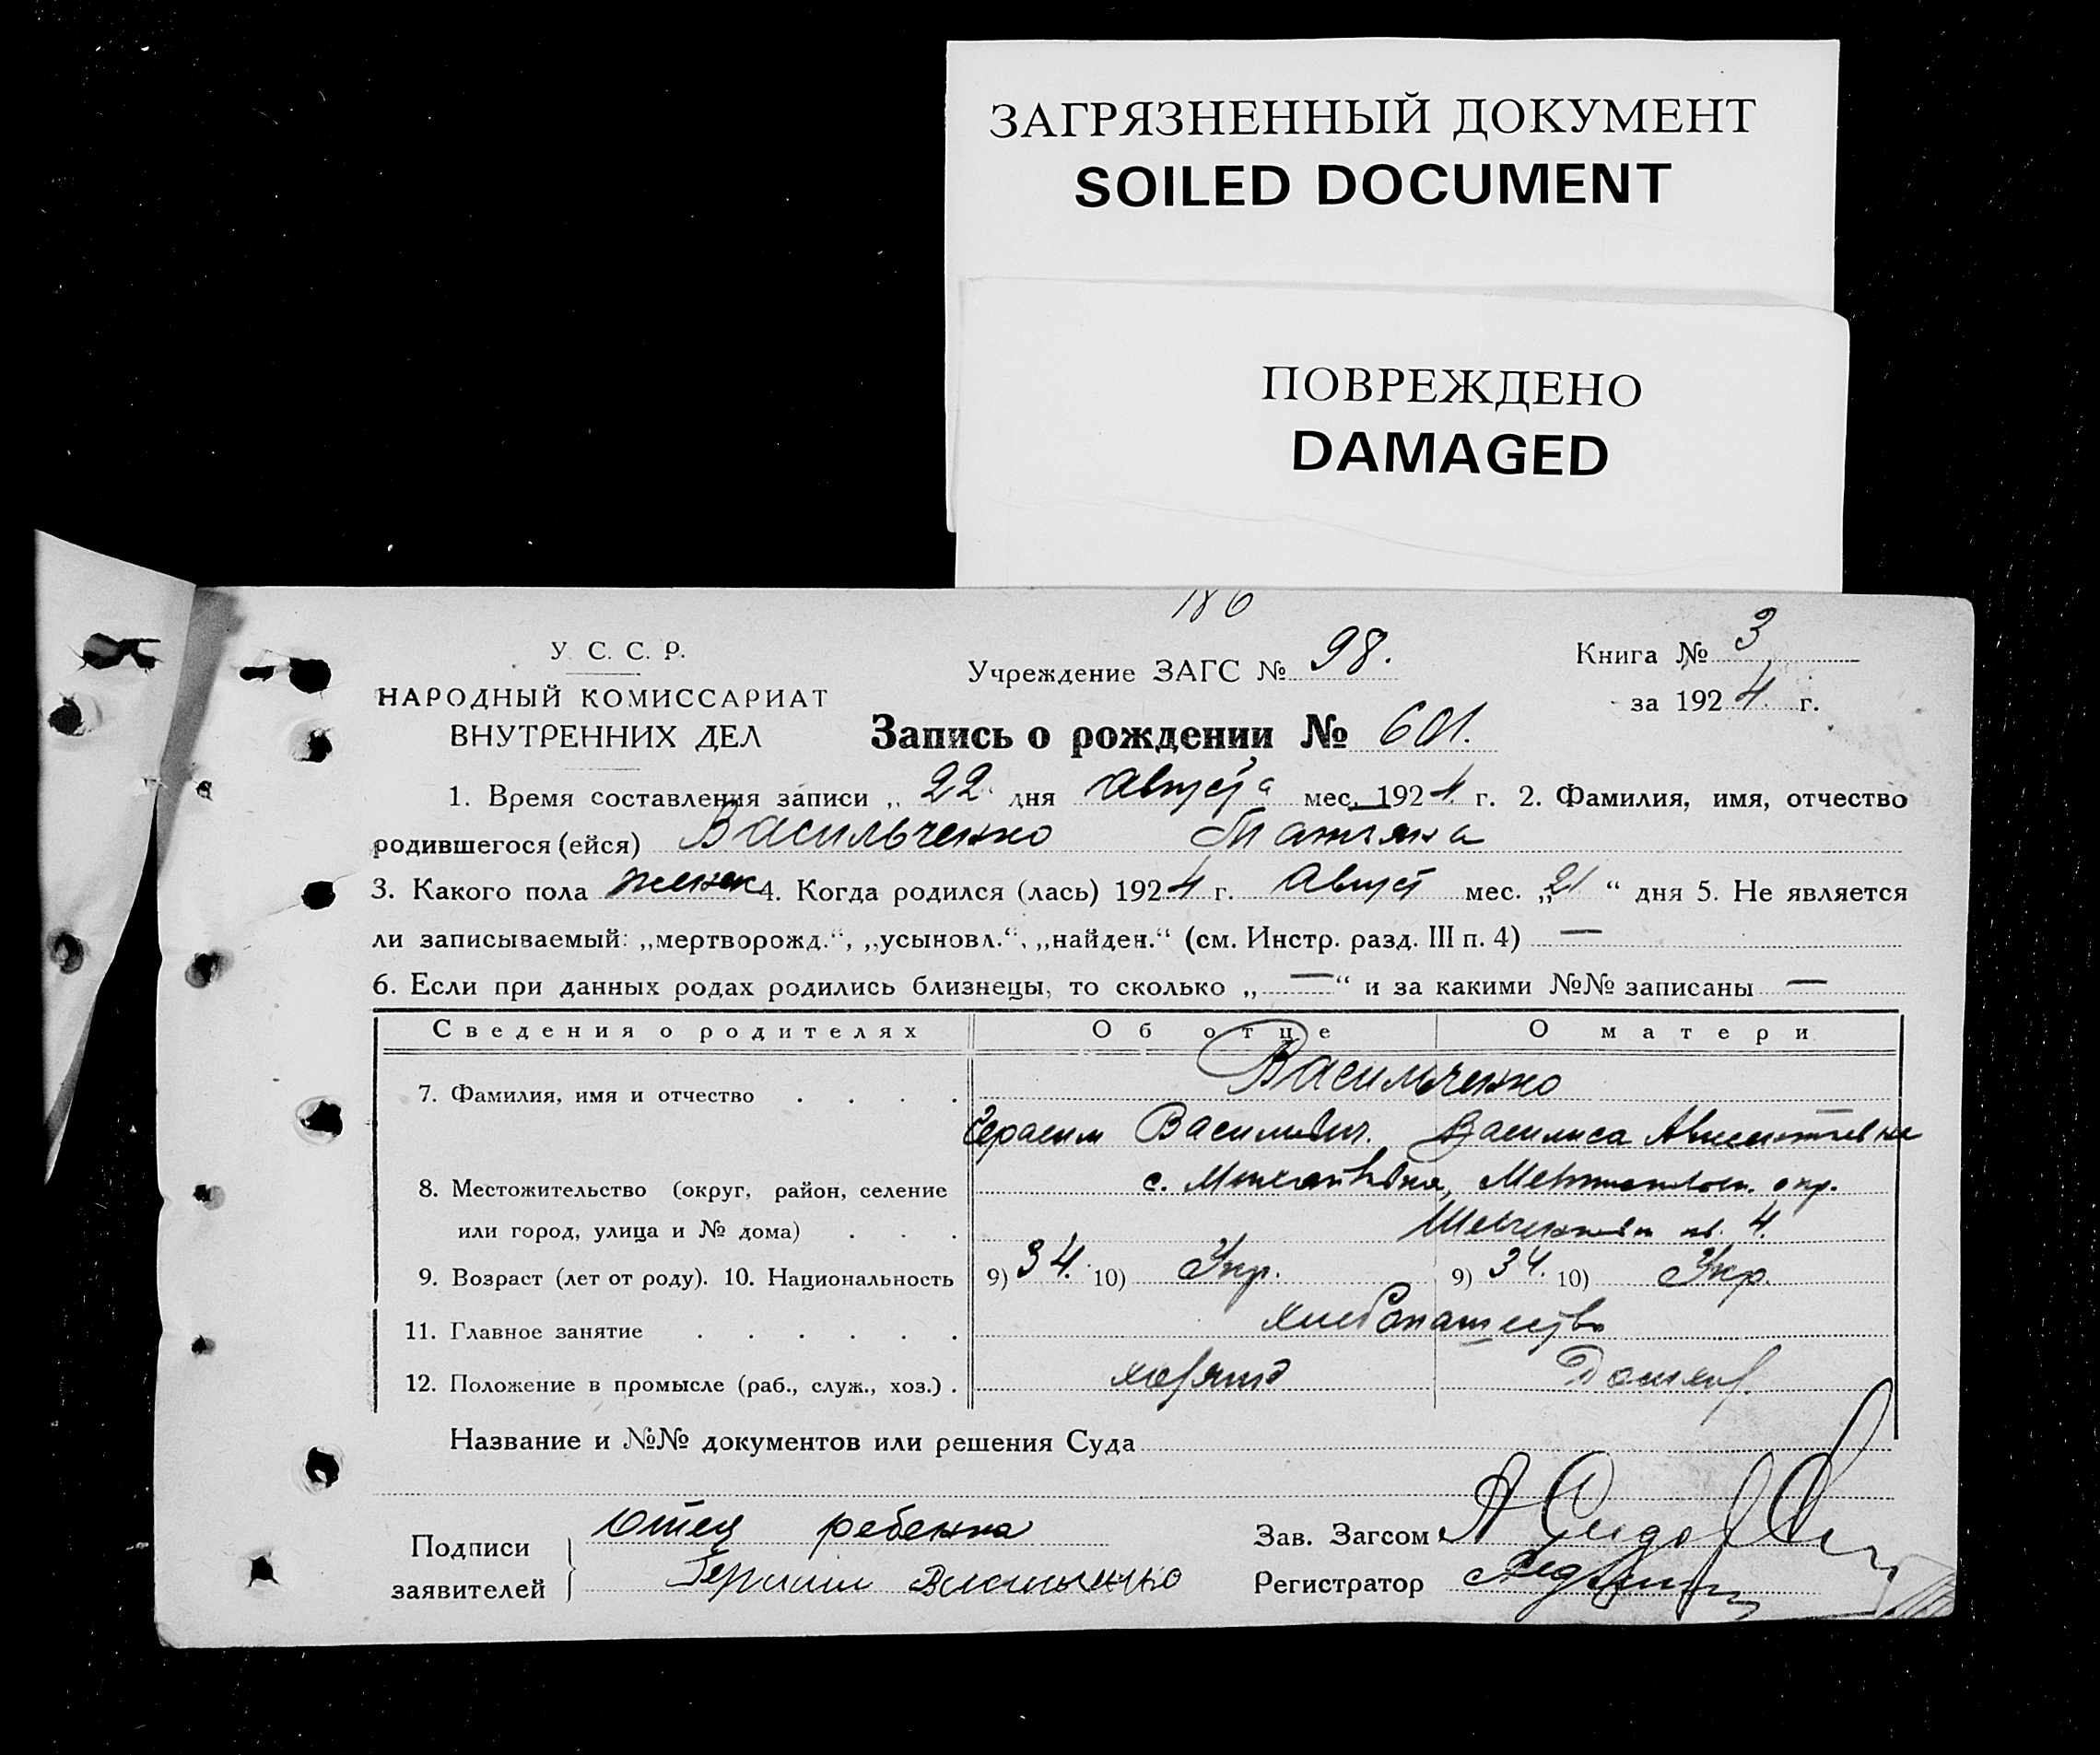 ЗАГРЯЗНЕННЫЙ ДОКУМЕНТ
SOILED DOCUMENT
ПОВРЕЖДЕНО
DAMAGED
186
У. С. С. Р.
НАРОДНЫЙ КОМИССАРИАТ
ВНУТРЕННИХ ДЕЛ
Учреждение ЗАГС № 98.
Книга № 3
за 1924 г.
Запись о рождении № 601.
1. Время составления записи „ 22 дня Августа мес. 1924 г. 2. Фамилия, имя, отчество
родившегося (ейся) Васильченко Татьяна
3. Какого пола женск 4. Когда родился (лась) 1924 г. Август мес. „21“ дня 5. Не является
ли записываемый: „мертворожд.“, „усыновл.“, „найден.“ (см. Инстр. разд. III п. 4) —
6. Если при данных родах родились близнецы, то сколько „—“ и за какими №№ записаны —
Сведения о родителях Об отце О матери
7. Фамилия, имя и отчество . . . . Васильченко
Герасим Васильевич. Василиса
8. Местожительство (округ, район, селение с. окр.
или город, улица и № дома) . . . 4.
9. Возраст (лет от роду). 10. Национальность 9) 34. 10) Укр. 9) 34. 10) Укр.
11. Главное занятие . . . . . . хлебопашество
12. Положение в промысле (раб., служ., хоз.) .
Название и №№ документов или решения Суда
Подписи
заявителей
Отец ребенка
Зав. Загсом
Регистратор